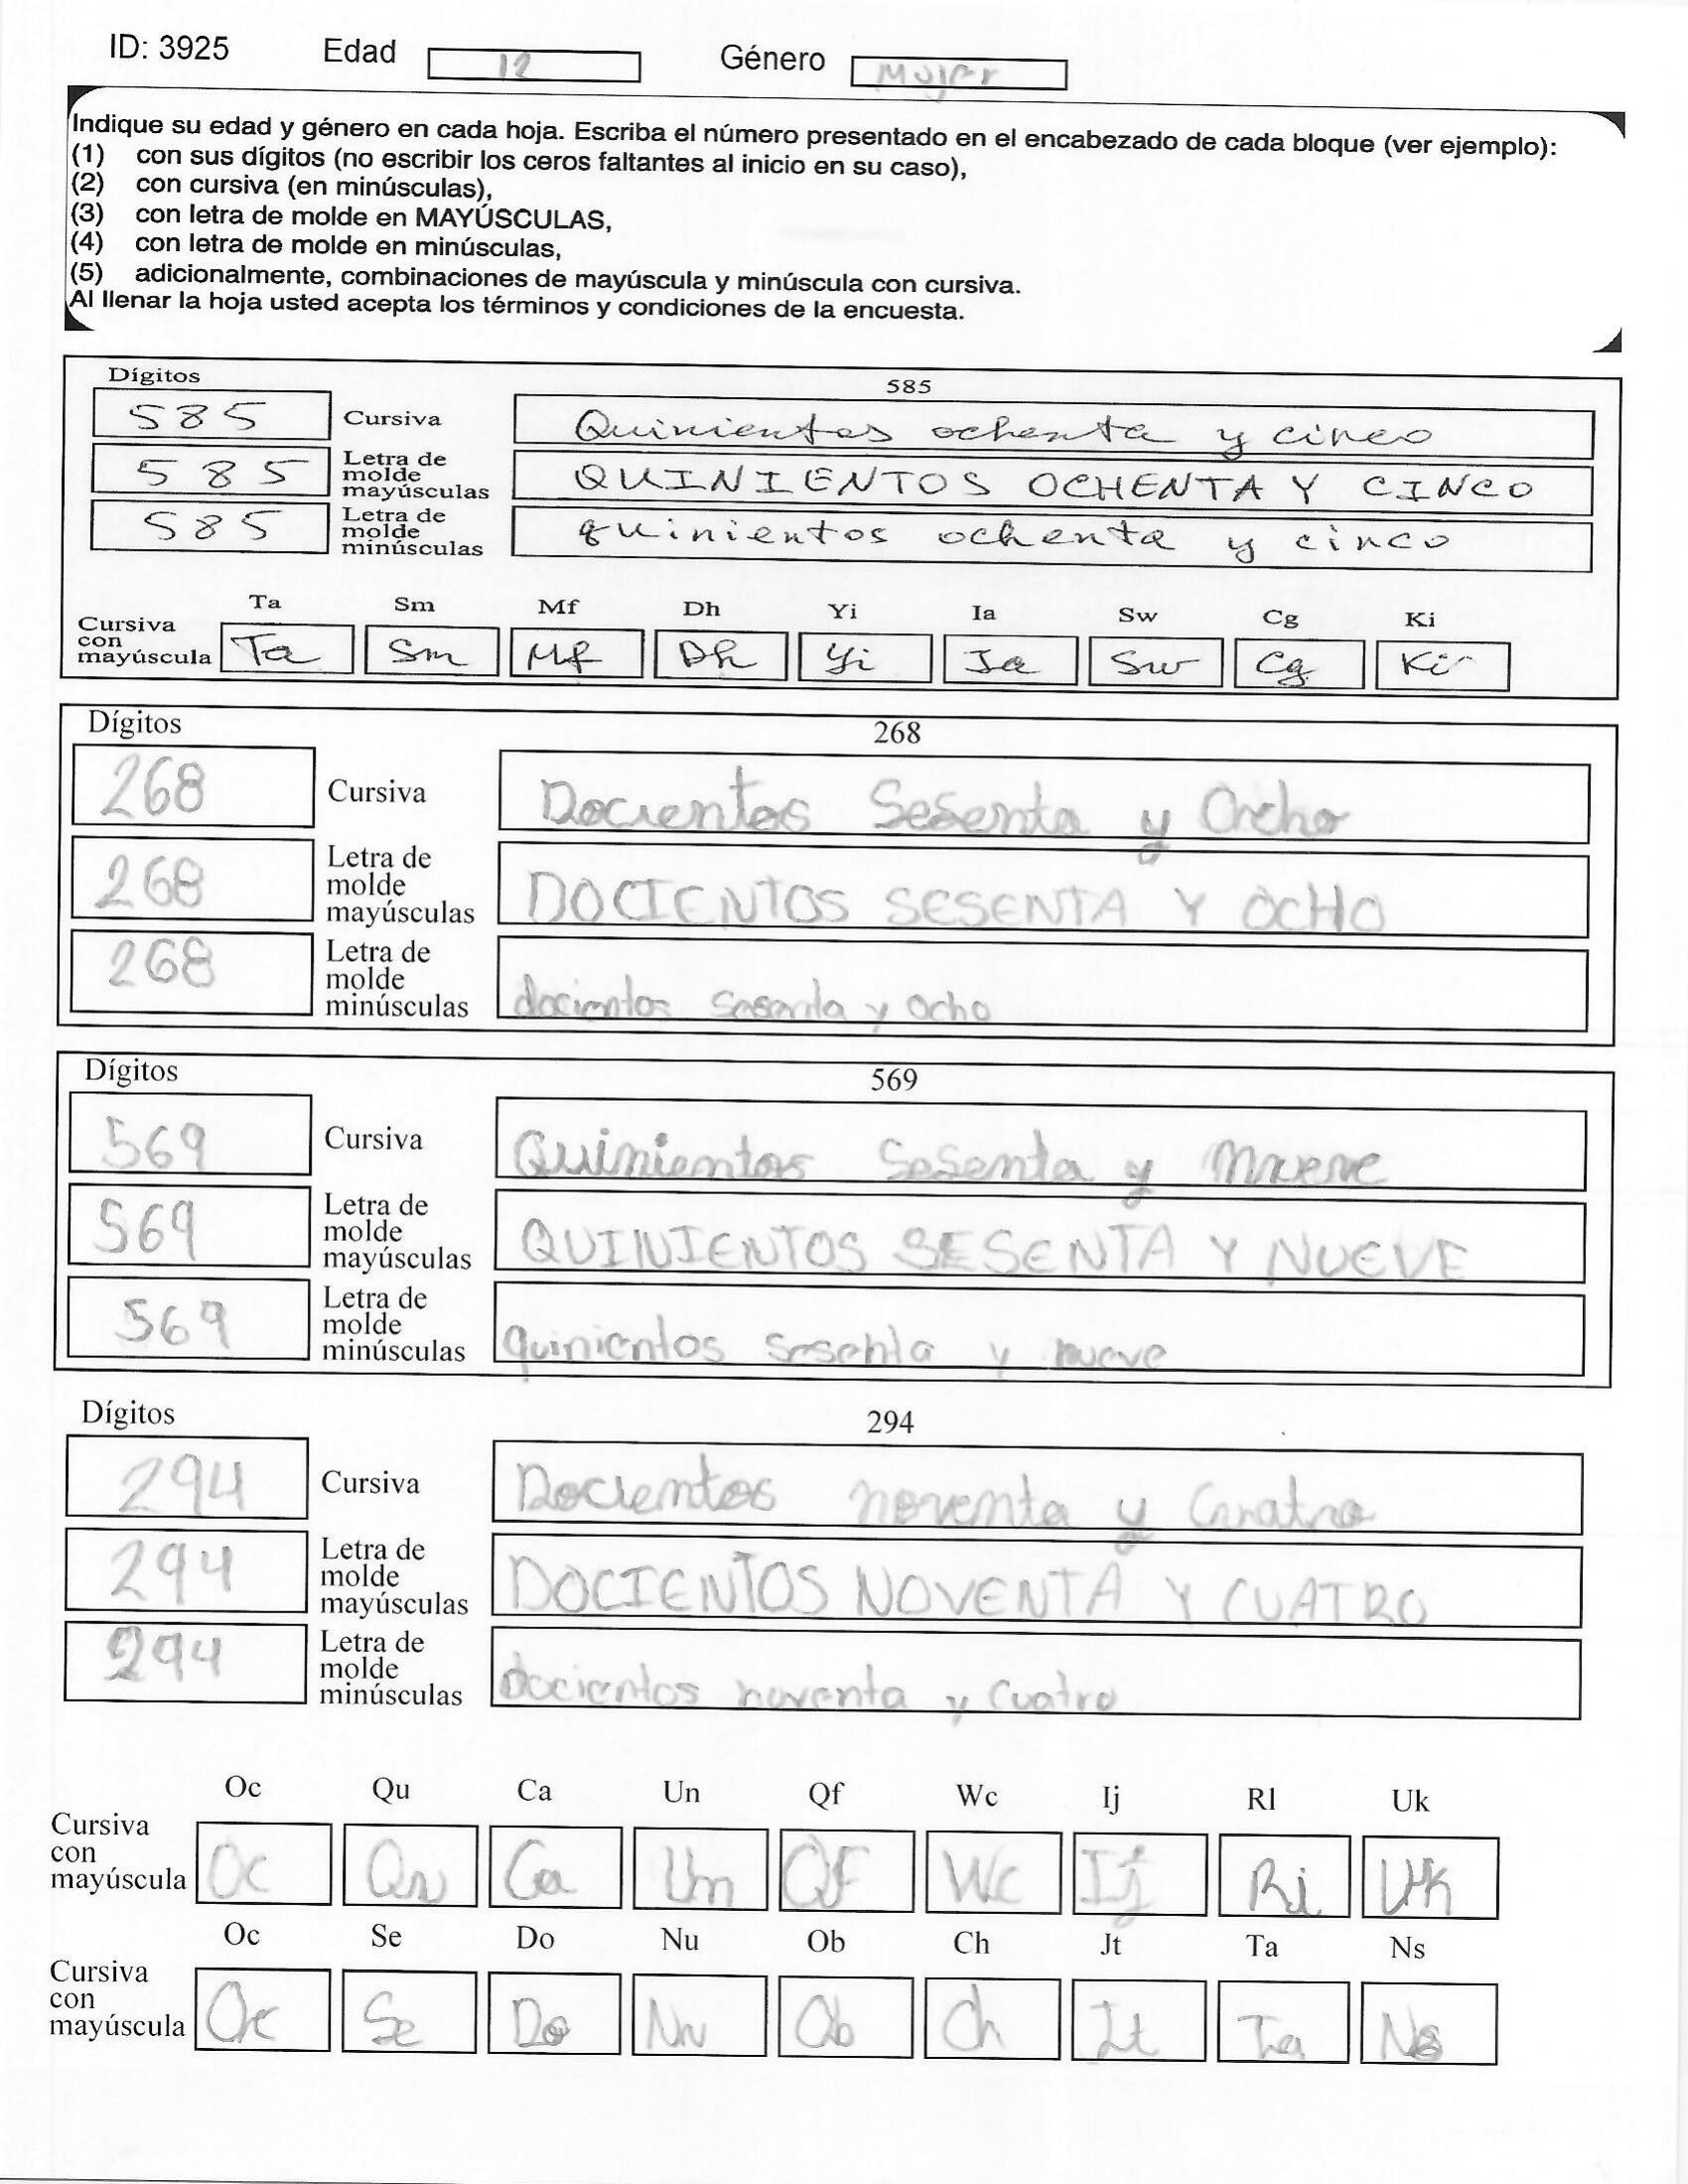 ID: 3925 Edad 12 Género Mujer
Indique su edad y género en cada hoja. Escriba el número presentado en el encabezado de cada bloque (ver ejemplo):
(1) con sus dígitos (no escribir los ceros faltantes al inicio en su caso),
(2) con cursiva (en minúsculas),
(3) con letra de molde en MAYÚSCULAS,
(4) con letra de molde en minúsculas,
(5) adicionalmente, combinaciones de mayúscula y minúscula con cursiva.
Al llenar la hoja usted acepta los términos y condiciones de la encuesta.
Dígitos 585
585 Cursiva Quinientos ochenta y cinco
585 Letra de molde mayúsculas QUINIENTOS OCHENTA Y CINCO
585 Letra de molde minúsculas quinientos ochenta y cinco
Ta Sm Mf Dh Yi Ia Sw Cg Ki
Cursiva con mayúscula Ta Sm Mf Dh Yi Ia Sw Cg Ki
Dígitos 268
268 Cursiva Docientos Sesenta y Ocho
268 Letra de molde mayúsculas DOCIENTOS SESENTA Y OCHO
268 Letra de molde minúsculas docientos sesenta y ocho
Dígitos 569
569 Cursiva Quinientos Sesenta y nueve
569 Letra de molde mayúsculas QUINIENTOS SESENTA Y NUEVE
569 Letra de molde minúsculas quinientos sesenta y nueve
Dígitos 294
294 Cursiva Docientos noventa y Cuatro
294 Letra de molde mayúsculas DOCIENTOS NOVENTA Y CUATRO
294 Letra de molde minúsculas docientos noventa y cuatro
Oc Qu Ca Un Qf Wc Ij Rl Uk
Cursiva con mayúscula Oc Qu Ca Un QF Wc Ij Ri Uk
Oc Se Do Nu Ob Ch Jt Ta Ns
Cursiva con mayúscula Oc Se Do Nu Ob Ch Jt Ta Ns